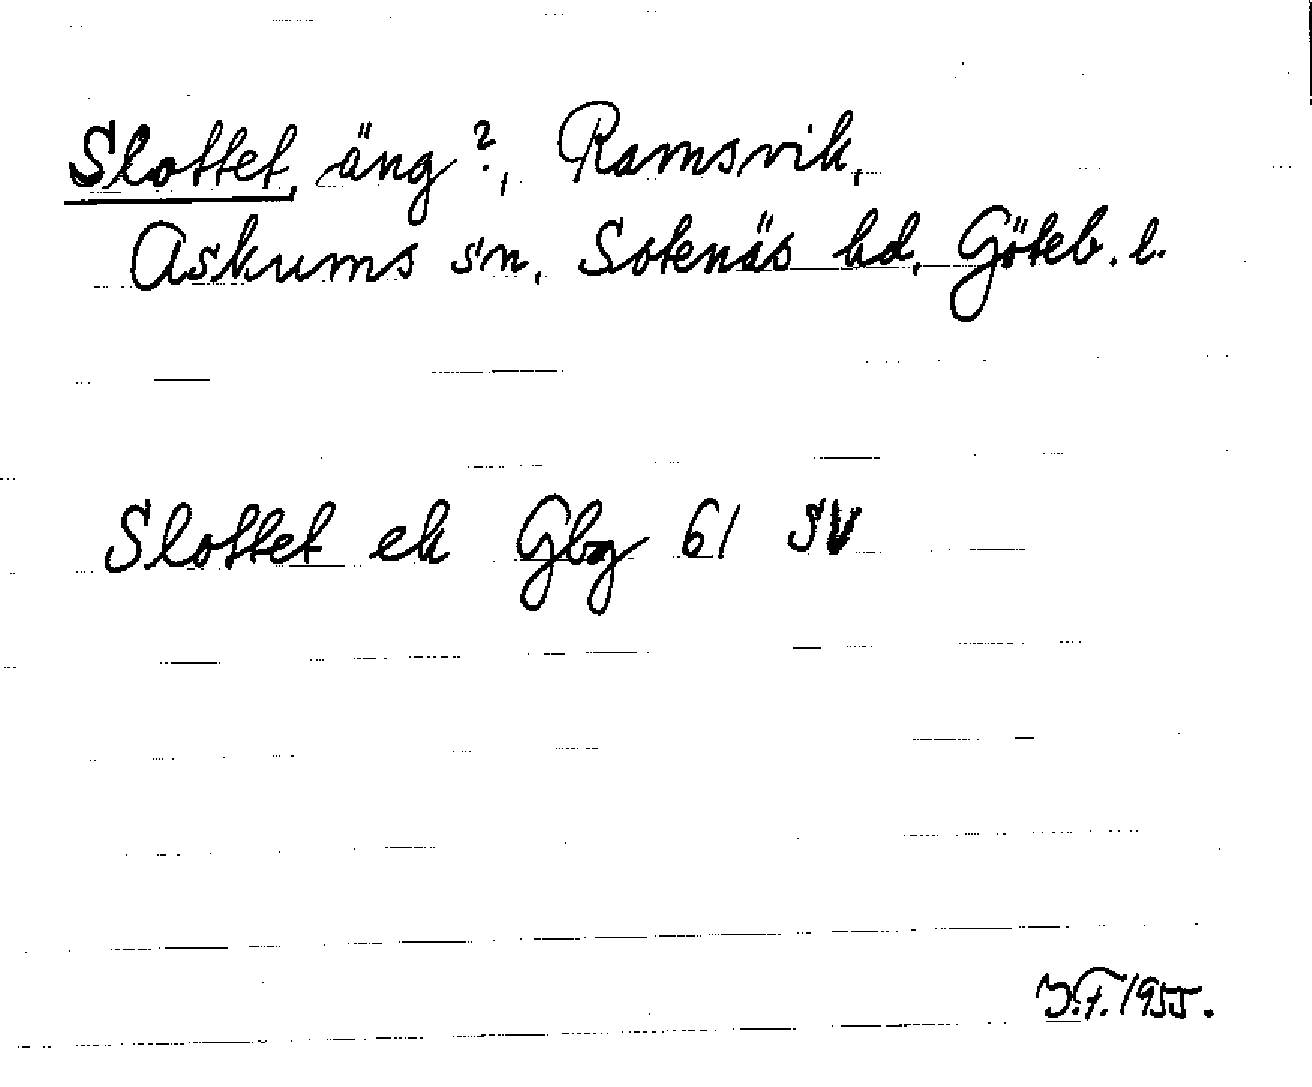 Slottet, äng?, Ramsvik,
Askums sn, Sotenäs hd, Göteb. l.
Slottet ek Gbg 61 SV
J.F. 1955.